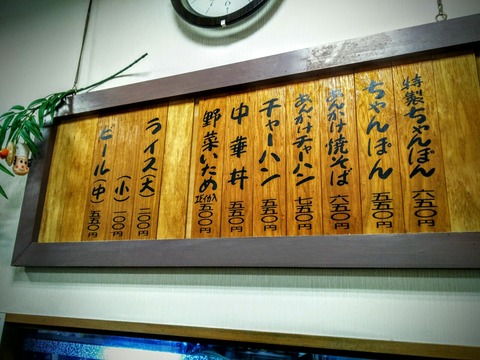 特製ちゃんぽん 六五〇円
ちゃんぽん 五五〇円
あんかけ焼そば 六五〇円
あんかけチャーハン 七五〇円
チャーハン 五五〇円
中華丼 五五〇円
野菜いため 五〇〇円
ライス(大) 二〇〇円
(小) 一〇〇円
ビール(中) 五五〇円